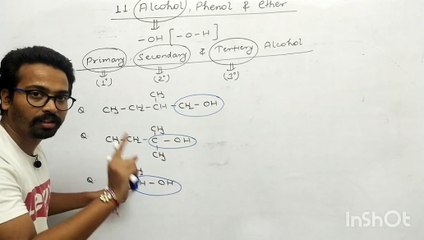 11 Alcohol, Phenol & Ether
-OH [-O-H]
Primary Secondary & Tertiary Alcohol
(1°) (2°) (3°)
CH₃
Q. CH₃-CH₂-CH-CH₂-OH
CH₃
Q. CH₃-CH₂-C-OH
CH₃
Q. H-OH
InShOt